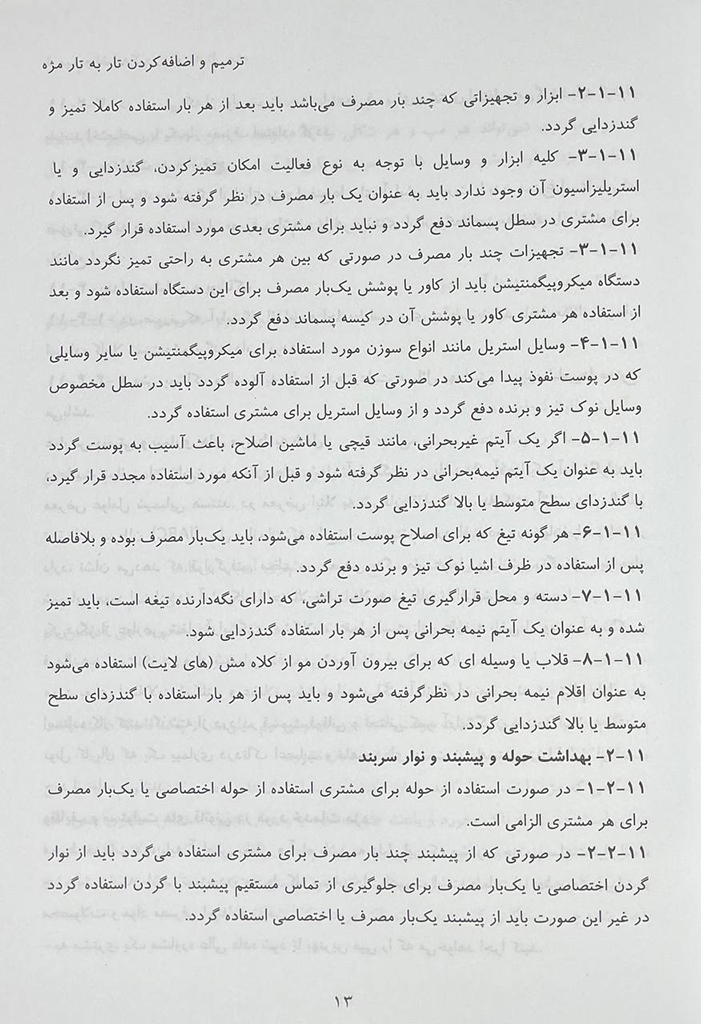 ترمیم و اضافه‌کردن تار به تار مژه
۱۱-۱-۲- ابزار و تجهیزاتی که چند بار مصرف می‌باشد باید بعد از هر بار استفاده کاملا تمیز و
گندزدایی گردد.
۱۱-۱-۳- کلیه ابزار و وسایل با توجه به نوع فعالیت امکان تمیزکردن، گندزدایی و یا
استریلیزاسیون آن وجود ندارد باید به عنوان یک بار مصرف در نظر گرفته شود و پس از استفاده
برای مشتری در سطل پسماند دفع گردد و نباید برای مشتری بعدی مورد استفاده قرار گیرد.
۱۱-۱-۳- تجهیزات چند بار مصرف در صورتی که بین هر مشتری به راحتی تمیز نگردد مانند
دستگاه میکروپیگمنتیشن باید از کاور یا پوشش یک‌بار مصرف برای این دستگاه استفاده شود و بعد
از استفاده هر مشتری کاور یا پوشش آن در کیسه پسماند دفع گردد.
۱۱-۱-۴- وسایل استریل مانند انواع سوزن مورد استفاده برای میکروپیگمنتیشن یا سایر وسایلی
که در پوست نفوذ پیدا می‌کند در صورتی که قبل از استفاده آلوده گردد باید در سطل مخصوص
وسایل نوک تیز و برنده دفع گردد و از وسایل استریل برای مشتری استفاده گردد.
۱۱-۱-۵- اگر یک آیتم غیربحرانی، مانند قیچی یا ماشین اصلاح، باعث آسیب به پوست گردد
باید به عنوان یک آیتم نیمه‌بحرانی در نظر گرفته شود و قبل از آنکه مورد استفاده مجدد قرار گیرد،
با گندزدای سطح متوسط یا بالا گندزدایی گردد.
۱۱-۱-۶- هر گونه تیغ که برای اصلاح پوست استفاده می‌شود، باید یک‌بار مصرف بوده و بلافاصله
پس از استفاده در ظرف اشیا نوک تیز و برنده دفع گردد.
۱۱-۱-۷- دسته و محل قرارگیری تیغ صورت تراشی، که دارای نگه‌دارنده تیغه است، باید تمیز
شده و به عنوان یک آیتم نیمه بحرانی پس از هر بار استفاده گندزدایی شود.
۱۱-۱-۸- قلاب یا وسیله ای که برای بیرون آوردن مو از کلاه مش (های لایت) استفاده می‌شود
به عنوان اقلام نیمه بحرانی در نظرگرفته می‌شود و باید پس از هر بار استفاده با گندزدای سطح
متوسط یا بالا گندزدایی گردد.
۱۱-۲- بهداشت حوله و پیشبند و نوار سربند
۱۱-۲-۱- در صورت استفاده از حوله برای مشتری استفاده از حوله اختصاصی یا یک‌بار مصرف
برای هر مشتری الزامی است.
۱۱-۲-۲- در صورتی که از پیشبند چند بار مصرف برای مشتری استفاده می‌گردد باید از نوار
گردن اختصاصی یا یک‌بار مصرف برای جلوگیری از تماس مستقیم پیشبند با گردن استفاده گردد
در غیر این صورت باید از پیشبند یک‌بار مصرف یا اختصاصی استفاده گردد.
۱۳